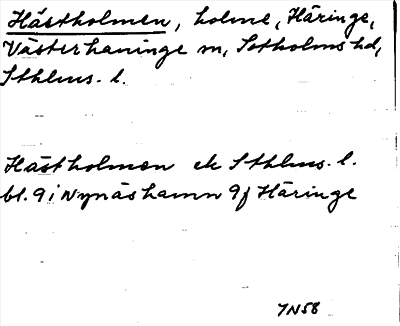 Hästholmen, holme, Häringe,
Västerhaninge sn, Sotholms hd,
Sthlms. l.
Hästholmen ek Sthlms. l.
bl. 9 i Nynäshamn 9f Häringe
7N58